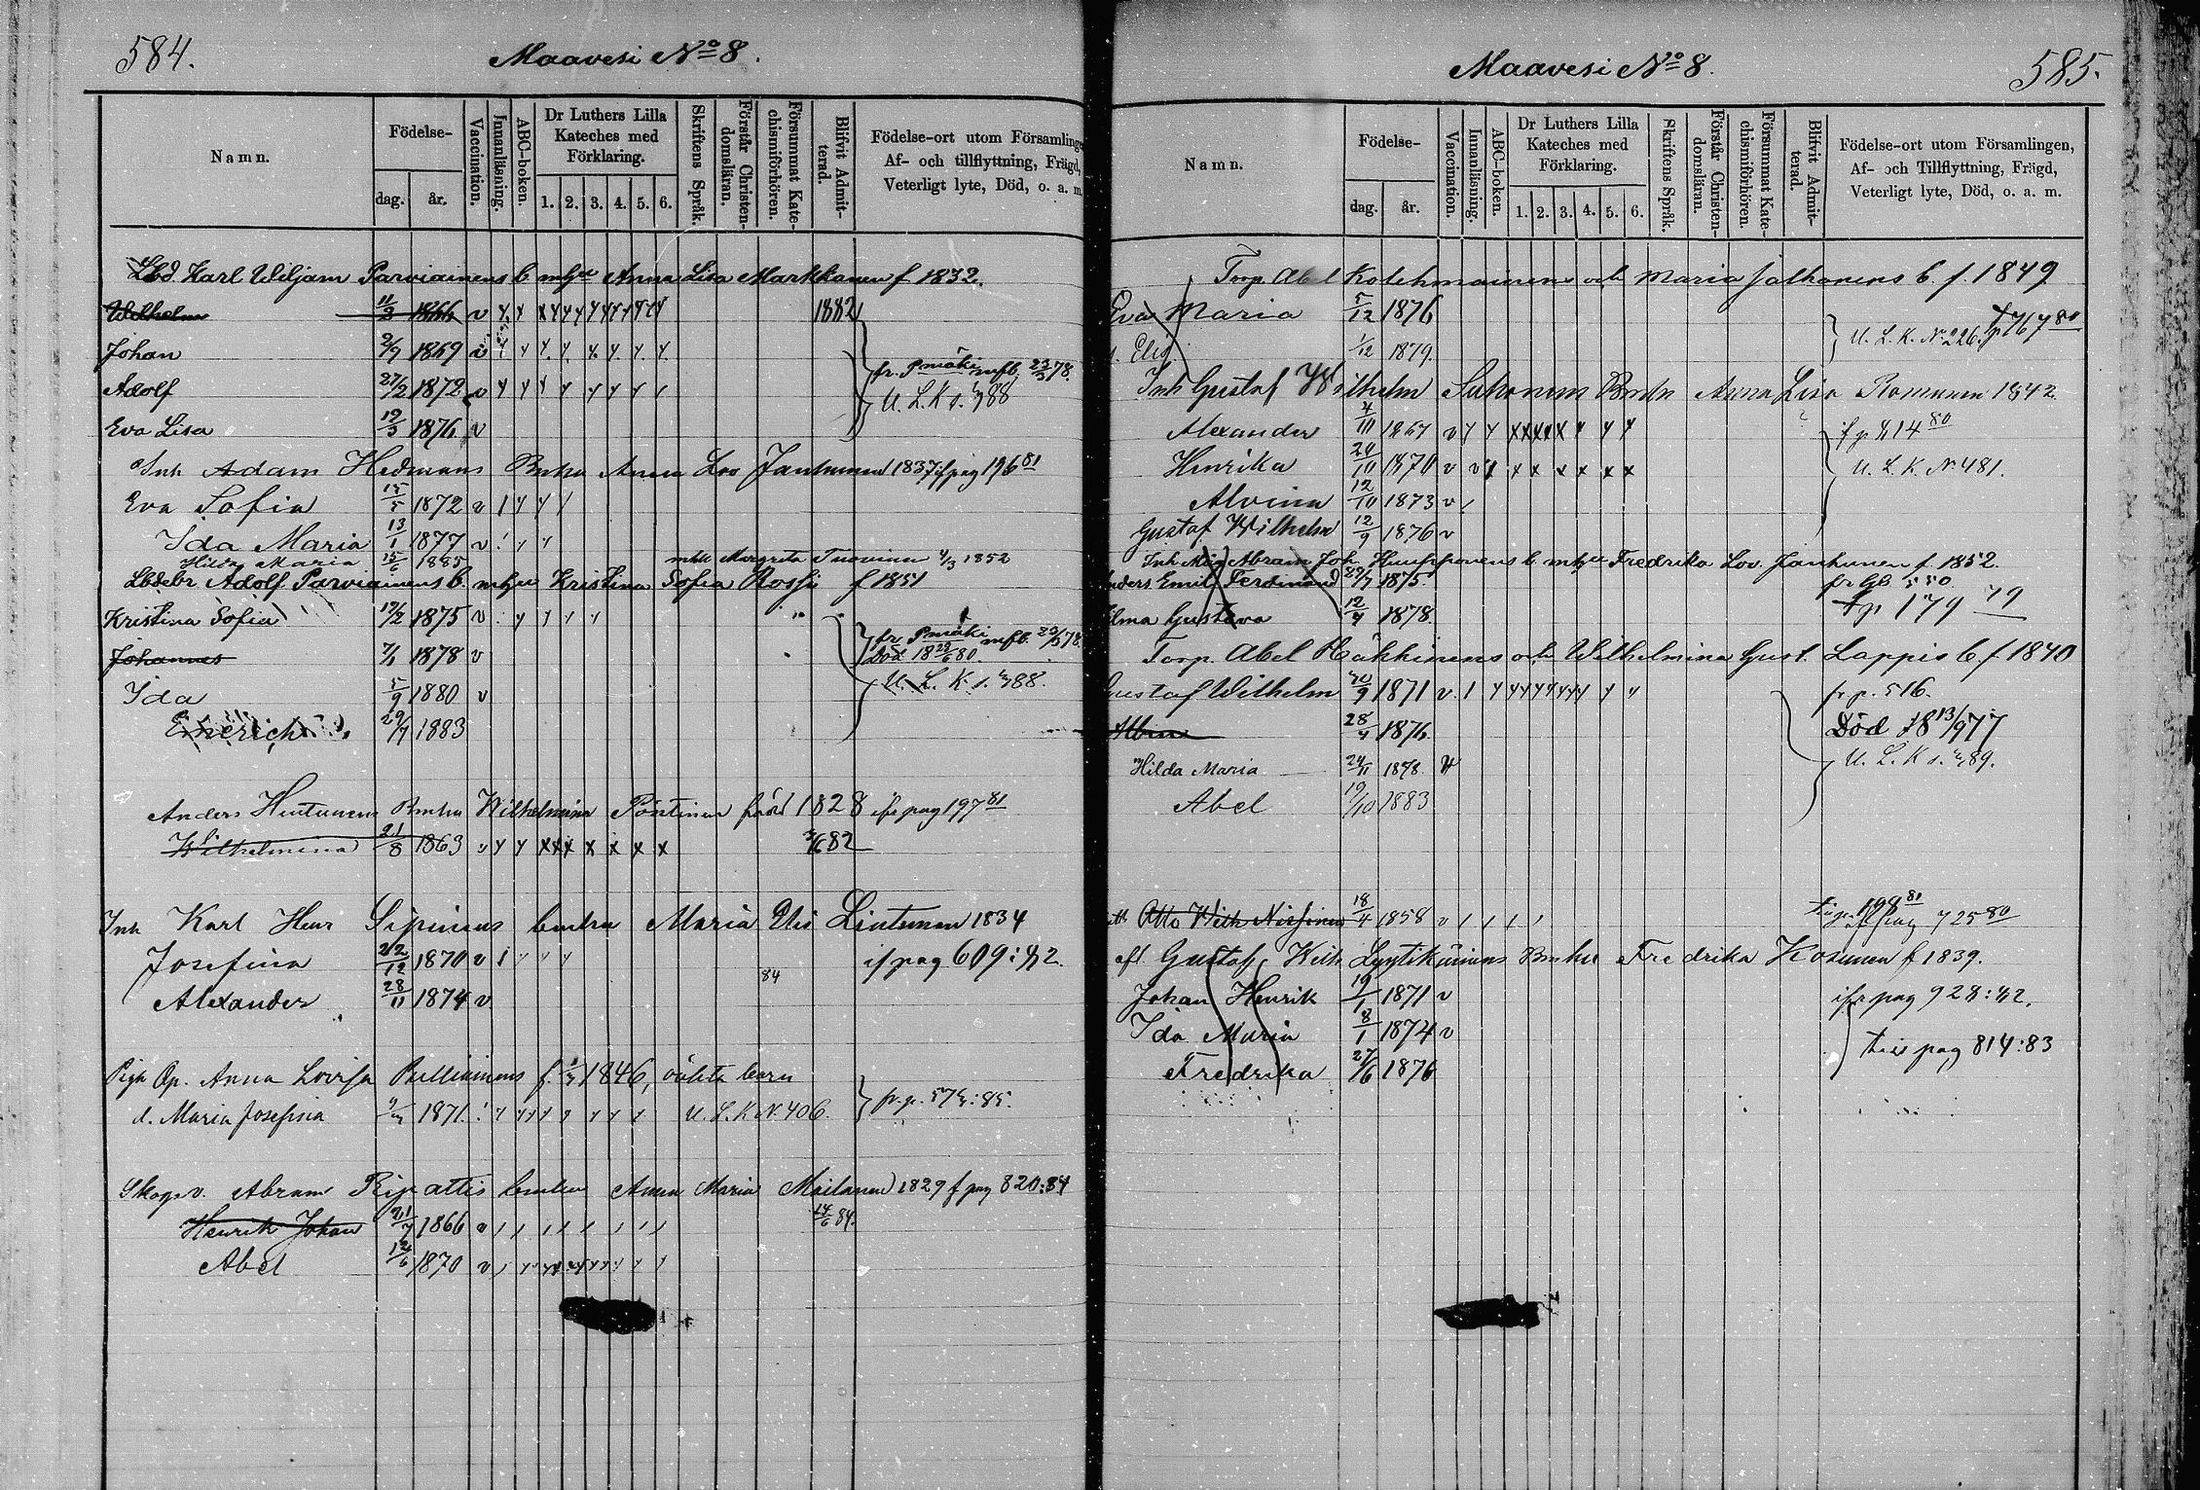 584.
Maavesi No 8.
Namn.
Födelse-
dag.
år.
Vaccination.
Innanläsning.
ABC-boken.
Dr Luthers Lilla Kateches med Förklaring.
1. 2. 3. 4. 5. 6.
Skriftens Språk.
Förstår Christendomsläran.
Försummat Katechismiförhören.
Blifvit Admitterad.
Födelse-ort utom Församlinge
Af- och tillflyttning, Frägd,
Veterligt lyte, Död, o. a. m.
Lbd. Karl Wiljam Parviainens b. m hu Anna Lisa Markkanen f. 1832.
Wilhelm 11/3 1866 v 1882
Johan 2/7 1869 v
fr. Pmäki mfb. 23/3 78.
Adolf 27/2 1872 v
U. L. K s. 488
Eva Lisa 19/3 1876 v
Inh Adam Hedmans Bmhu Anna Lov Jantunen 1837 if pag 196 81
Eva Sofia 15/5 1872 v
Ida Maria 13/1 1877 v
Hilda Maria 15/6 1885 mhu Margreta Tuovinen 4/3 1852
Lbdebr Adolf Parviainens b. m hu Kristina Sofia Rossi f 1851
Kristina Sofia 19/2 1875 v
fr Pmäki mfb. 23/3 78.
Johannes 7/1 1878 v
Död 18 28/6 80.
Ida 5/9 1880 v
U. L. K. s. 488.
Emerich 29/7 1883
Anders Hintunens Bmhu Wilhelmina Pöntinen född 1828 ifr pag 197 81
Wilhelmina 21/8 1863 v 82
Inh Karl Henr Sipinens bmhu Maria Elis Lintunen 1834
Josefina 22/12 1870 v
if pag 609:82.
84
Alexander 28/11 1874 v
Pigh Op. Anna Lovisa Pulliainens f. 1846, oäkta barn
d. Maria Josefina 1871. U. L. K N. 406.
Skogsv. Abram Ripattis bmhu Anna Maria Moilanen 1829 f pag 820:84
Henrik Johan 21/7 1866 v 14/6 84.
Abel 1870 v
Maavesi No 8.
585.
Namn.
Födelse-
dag.
år.
Vaccination.
Innanläsning.
ABC-boken.
Dr Luthers Lilla Kateches med Förklaring.
1. 2. 3. 4. 5. 6.
Skriftens Språk.
Förstår Christendomsläran.
Försummat Katechismiförhören.
Blifvit Admitterad.
Födelse-ort utom Församlingen,
Af- och Tillflyttning, Frägd,
Veterligt lyte, Död, o. a. m.
Torp. Abel Kotchmainens och Maria Jalkanens b. f. 1849
Eva Maria 5/12 1876
U. L. K. No 226. tp 767 80
Elis 1/12 1879.
Inh Gustaf Wilhelm Suhonens Bmhu Anna Lisa Romunen 1842.
Alexander 4/11 1867 v
Henrika 1870 v
U. L. K. N. 481.
Alvina 12/10 1873 v
Gustaf Wilhelm 12/9 1876 v
Abram Joh. b. m hu Fredrika Lov. Janhunen f. 1852.
Anders Emil Ferdinand 29/7 1875
Elma Gustava 12/4 1878.
tp 179 79
Torp. Abel Häkkinens och Wilhelmina Gust. Lappis b. f 1840
Gustaf Wilhelm 1871 v
fr p. 516.
Albin 28/4 1876.
Död 18 13/9 77
Hilda Maria 24/11 1878
U. L. K s. 489.
Abel 19/10 1883
Otto Wilh Nissinen 18/4 1858 v
pag 725 80
Gustaf Wilh Lyytikäinens Bmhu Fredrika Kosunen f 1839.
Johan Henrik 19/1 1871 v
ifr pag 928:82.
Ida Maria 8/1 1874 v
till pag 814:83
Fredrika 27/6 1876